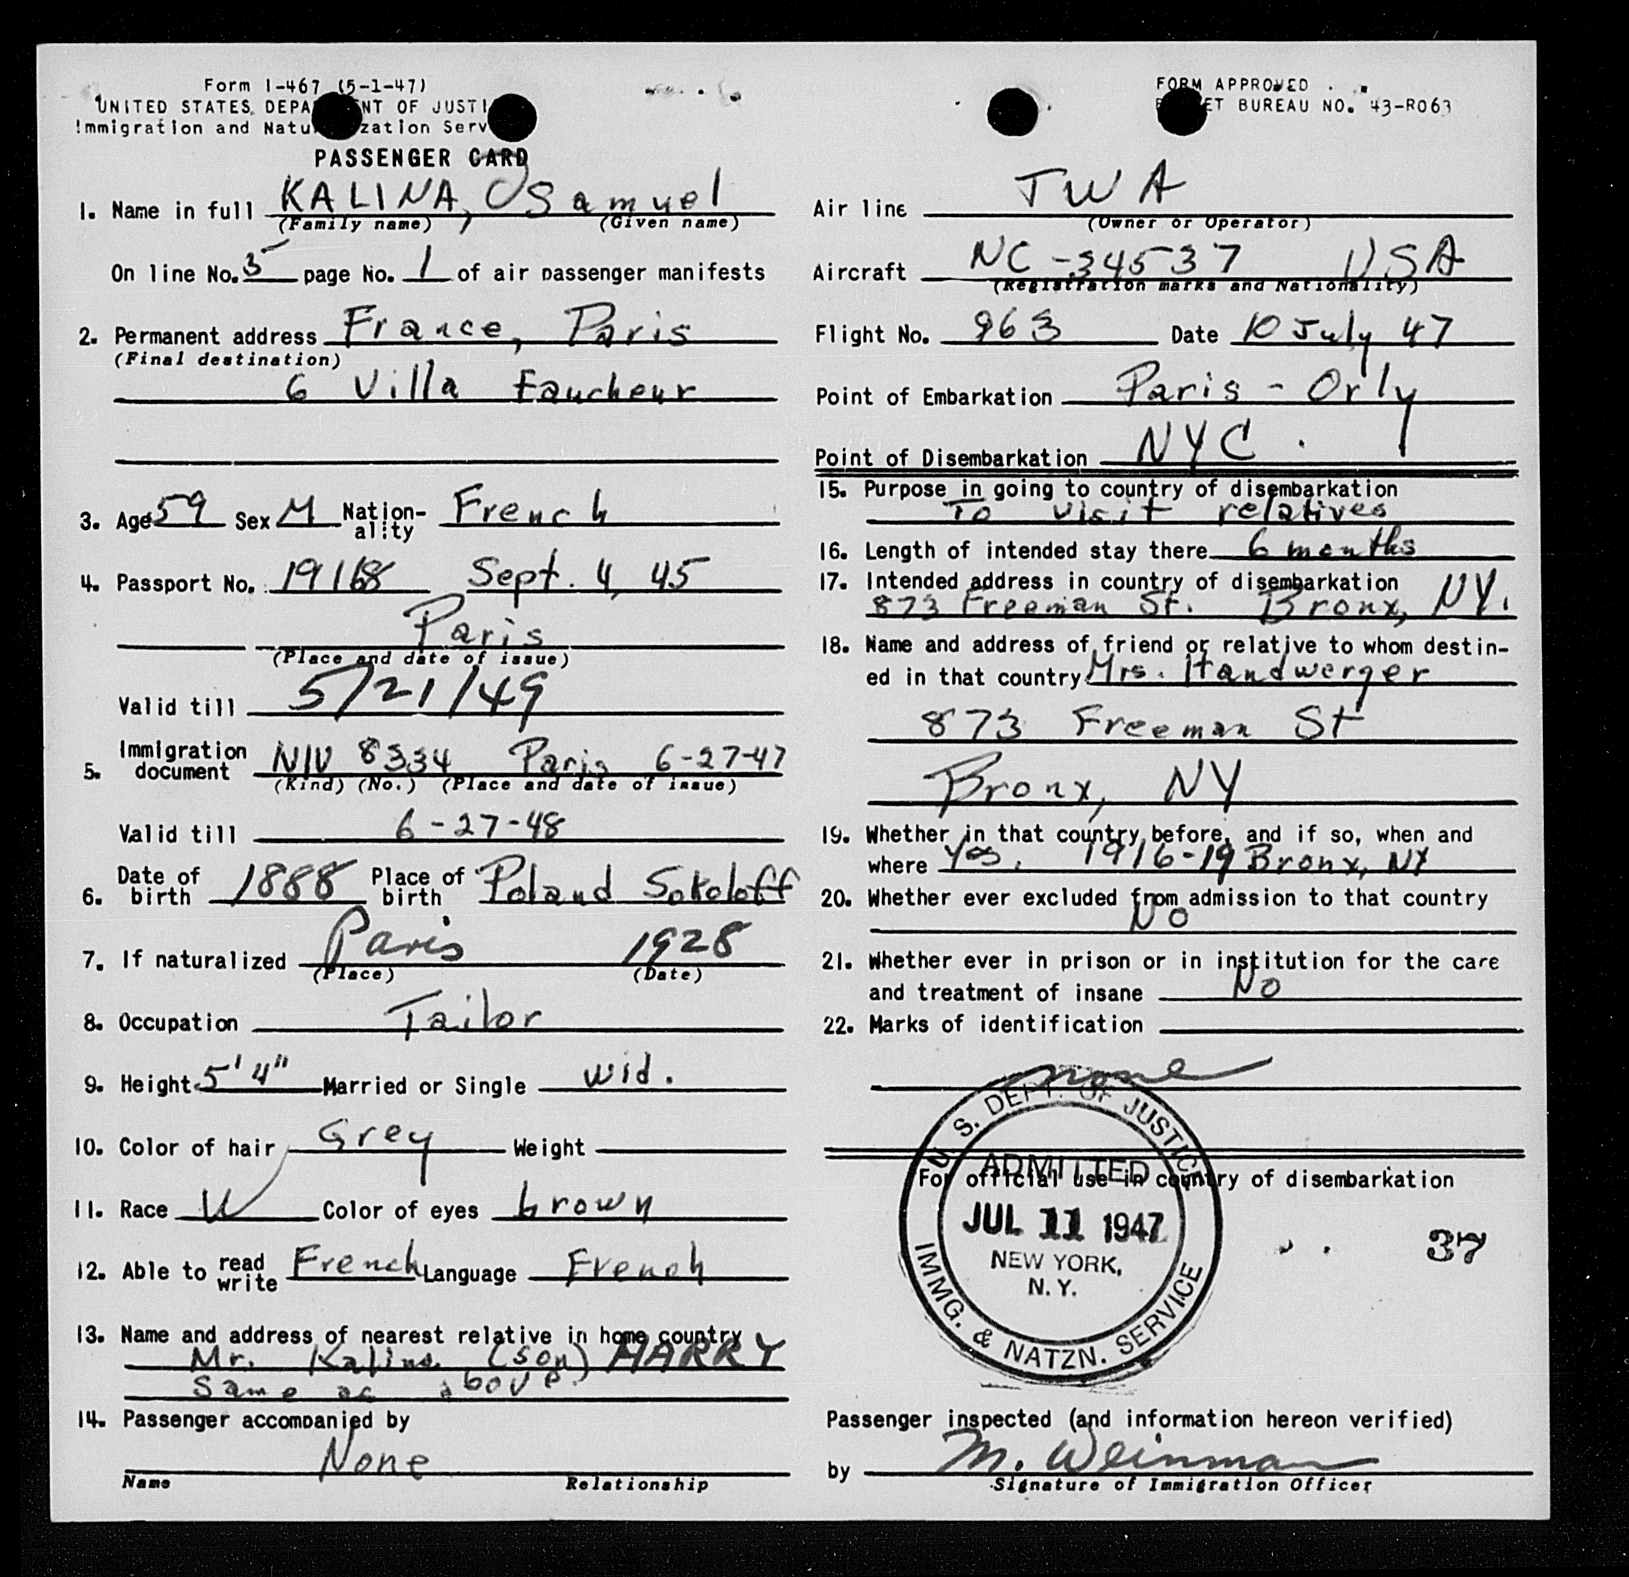 Form I-467 (5-1-47)
UNITED STATES DEPA NT OF JUSTI
Immigration and Natu zation Serv
PASSENGER CARD
1. Name in full KALINA, Samuel
(Family name) (Given name)
On line No. 5 page No. 1 of air passenger manifests
2. Permanent address France, Paris
(Final destination)
6 Villa Faucheur
3. Age 59 Sex M Nation-ality French
4. Passport No. 19168 Sept. 4, 45
Paris
(Place and date of issue)
Valid till 5/21/49
5. Immigration document NIV 8334 Paris 6-27-47
(Kind) (No.) (Place and date of issue)
Valid till 6-27-48
6. Date of birth 1888 Place of birth Poland Sokoloff
7. If naturalized Paris 1928
(Place) (Date)
8. Occupation Tailor
9. Height 5'4" Married or Single wid.
10. Color of hair Grey Weight
11. Race W Color of eyes brown
12. Able to read write French Language French
13. Name and address of nearest relative in home country
Mr. Kalina (son) HARRY
Same as above.
14. Passenger accompanied by
None
Name Relationship
FORM APPROVED
ET BUREAU NO. 43-R063
Air line TWA
(Owner or Operator)
Aircraft NC-34537 USA
(Registration marks and Nationality)
Flight No. 963 Date 10 July 47
Point of Embarkation Paris - Orly
Point of Disembarkation NYC.
15. Purpose in going to country of disembarkation
To visit relatives
16. Length of intended stay there 6 months
17. Intended address in country of disembarkation
873 Freeman St. Bronx, NY.
18. Name and address of friend or relative to whom destin-
ed in that country Mrs. Handwerger
873 Freeman St
Bronx, NY
19. Whether in that country before, and if so, when and
where Yes. 1916-19 Bronx, NY
20. Whether ever excluded from admission to that country
No
21. Whether ever in prison or in institution for the care
and treatment of insane No
22. Marks of identification
none
For official use in country of disembarkation
U. S. DEPT. OF JUSTICE
ADMITTED
JUL 11 1947
NEW YORK,
N. Y.
IMMG. & NATZN. SERVICE
37
Passenger inspected (and information hereon verified)
by M. Weinman
Signature of Immigration Officer